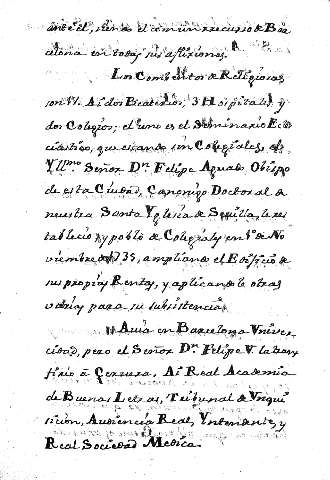 ante èl, siendo el comun recurso de Bar
celona en todas sus aflixiones.
Los Combentos de Religiosas
son 17. Ai dos Beaterios, 3 Hospitales y
dos Colegios; el uno es el Seminario Ecc
siastico, que estando sin Colegiales, el
Yllmo. Señor Dn. Felipe Aguado Obispo
de esta Ciudad, Canonigo Doctoral de
nuestra Santa Yglesia de Sevilla, le res
tableció, y pobló de Colegiales en 1º de No
viembre de 1735, ampliando el Edificio de
sus propias Rentas, y aplicandole otras
varias para su subsistencia.
Avia en Barcelona Vniver
cidad, pero el Señor Dn. Felipe V. la tran
firio à Cervera. Ai Real Academia
de Buenas Letras, Tribunal de Ynqui
sicion, Audiencia Real, Yntendente, y
Real Sociedad Medica.